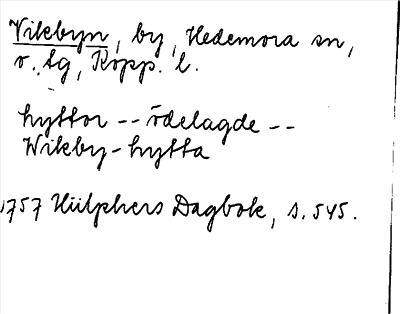 Vikbyn, by, Hedemora sn,
v. tg, Kopp. l.
hyttor -- ödelagde --
Wikby-hytta
1757 Hülphers Dagbok, s. 545.